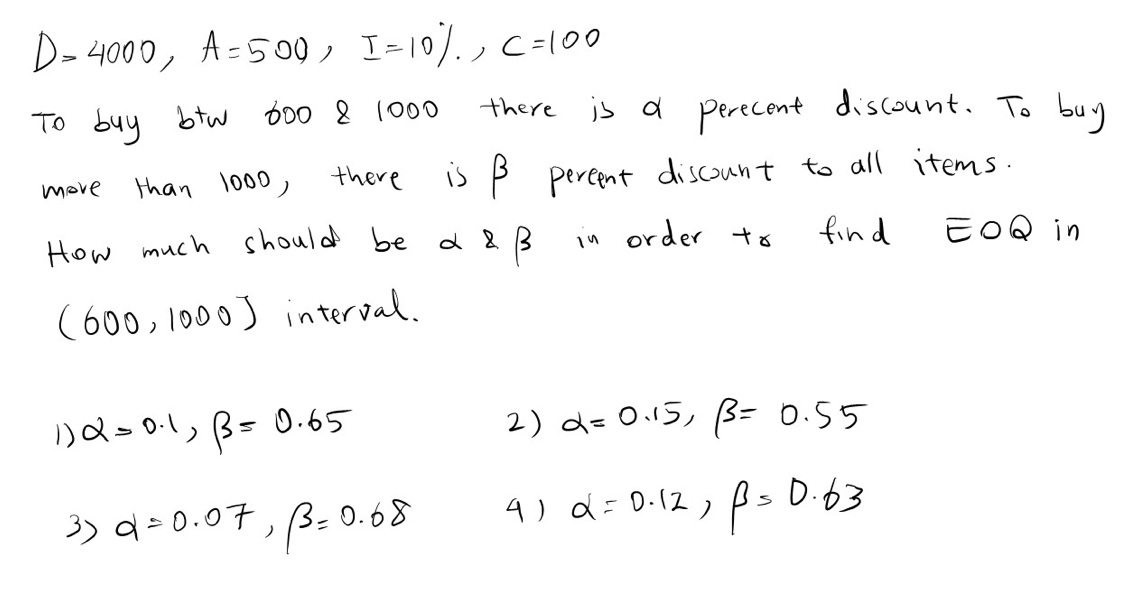 D=4000, A=500, I=10%., C=100
To buy btw 600 & 1000 there is α perecent discount. To buy
more than 1000, there is β percent discount to all items.
How much should be α & β in order to find EOQ in
(600, 1000] interval.
1) α=0.1, β=0.65 2) α=0.15, β=0.55
3) α=0.07, β=0.68 4) α=0.12, β=0.63